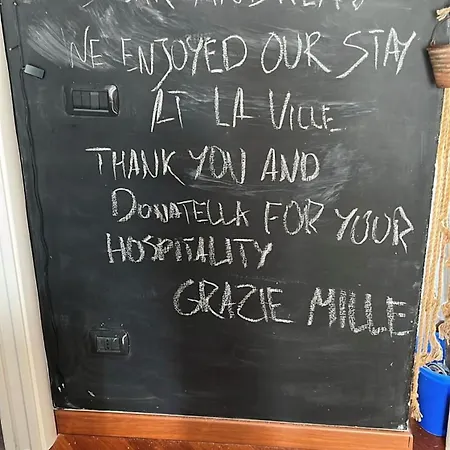 WE ENJOYED OUR STAY
AT LA VILLE
THANK YOU AND
DONATELLA FOR YOUR
HOSPITALITY
GRAZIE MILLE